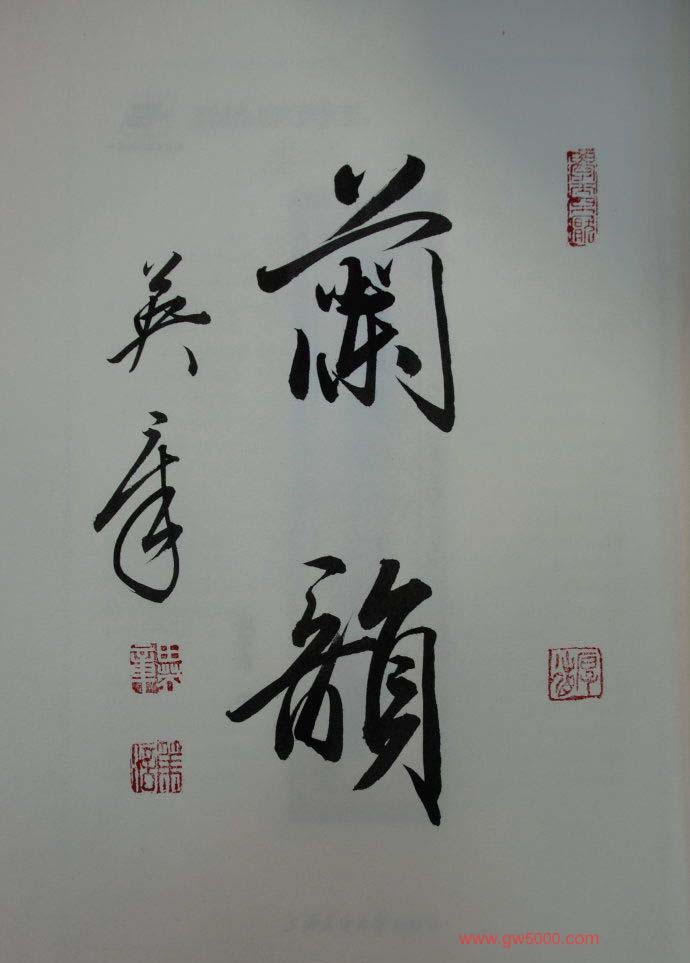 蘭韻
英章
www.gw5000.com